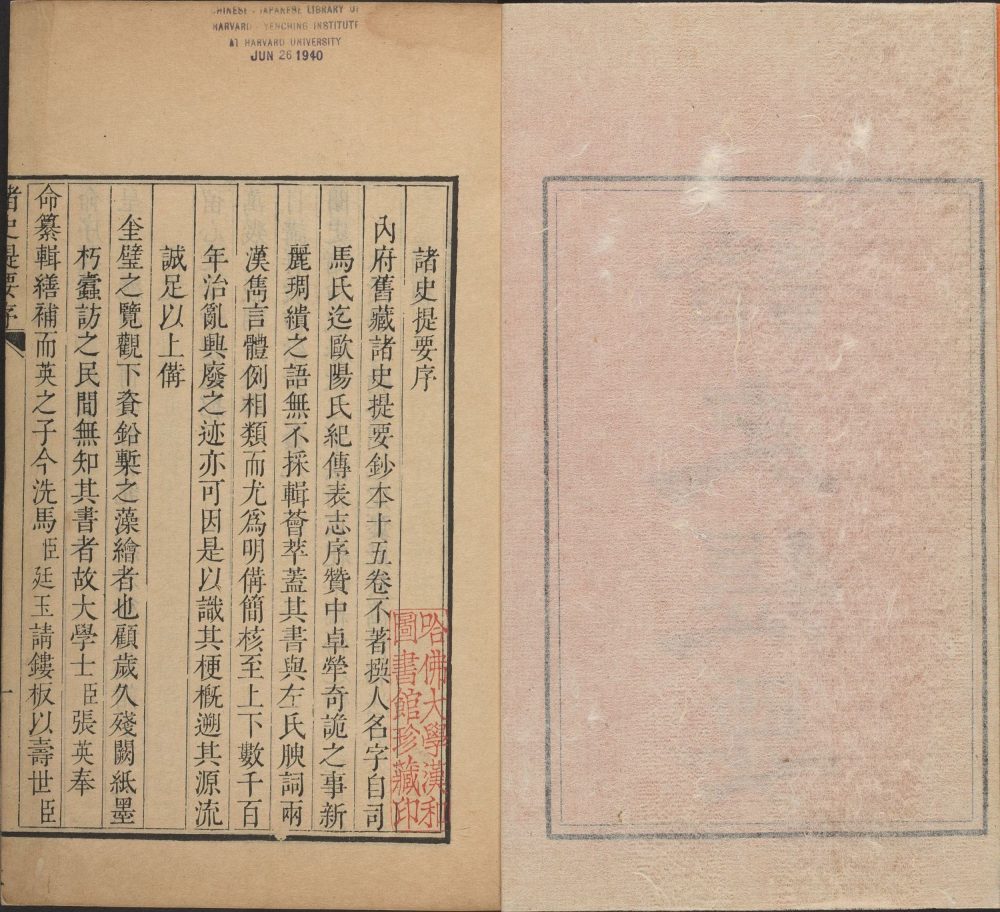 CHINESE - JAPANESE LIBRARY OF
HARVARD YENCHING INSTITUTE
AT HARVARD UNIVERSITY
JUN 26 1940
諸史提要序
內府舊藏諸史提要鈔本十五卷不著撰人名字自司
馬氏迄歐陽氏紀傳表志序贊中卓犖奇詭之事新
麗琱繢之語無不採輯薈萃蓋其書與左氏腴詞兩
漢雋言體例相類而尤爲明備簡核至上下數千百
年治亂興廢之迹亦可因是以識其梗槪遡其源流
誠足以上備
奎璧之覽觀下資鉛槧之藻繪者也顧歲久殘闕紙墨
朽蠹訪之民間無知其書者故大學士臣張英奉
命纂輯繕補而英之子今洗馬臣廷玉請鏤板以壽世臣
諸史提要序
一
哈佛大學漢和
圖書館珍藏印